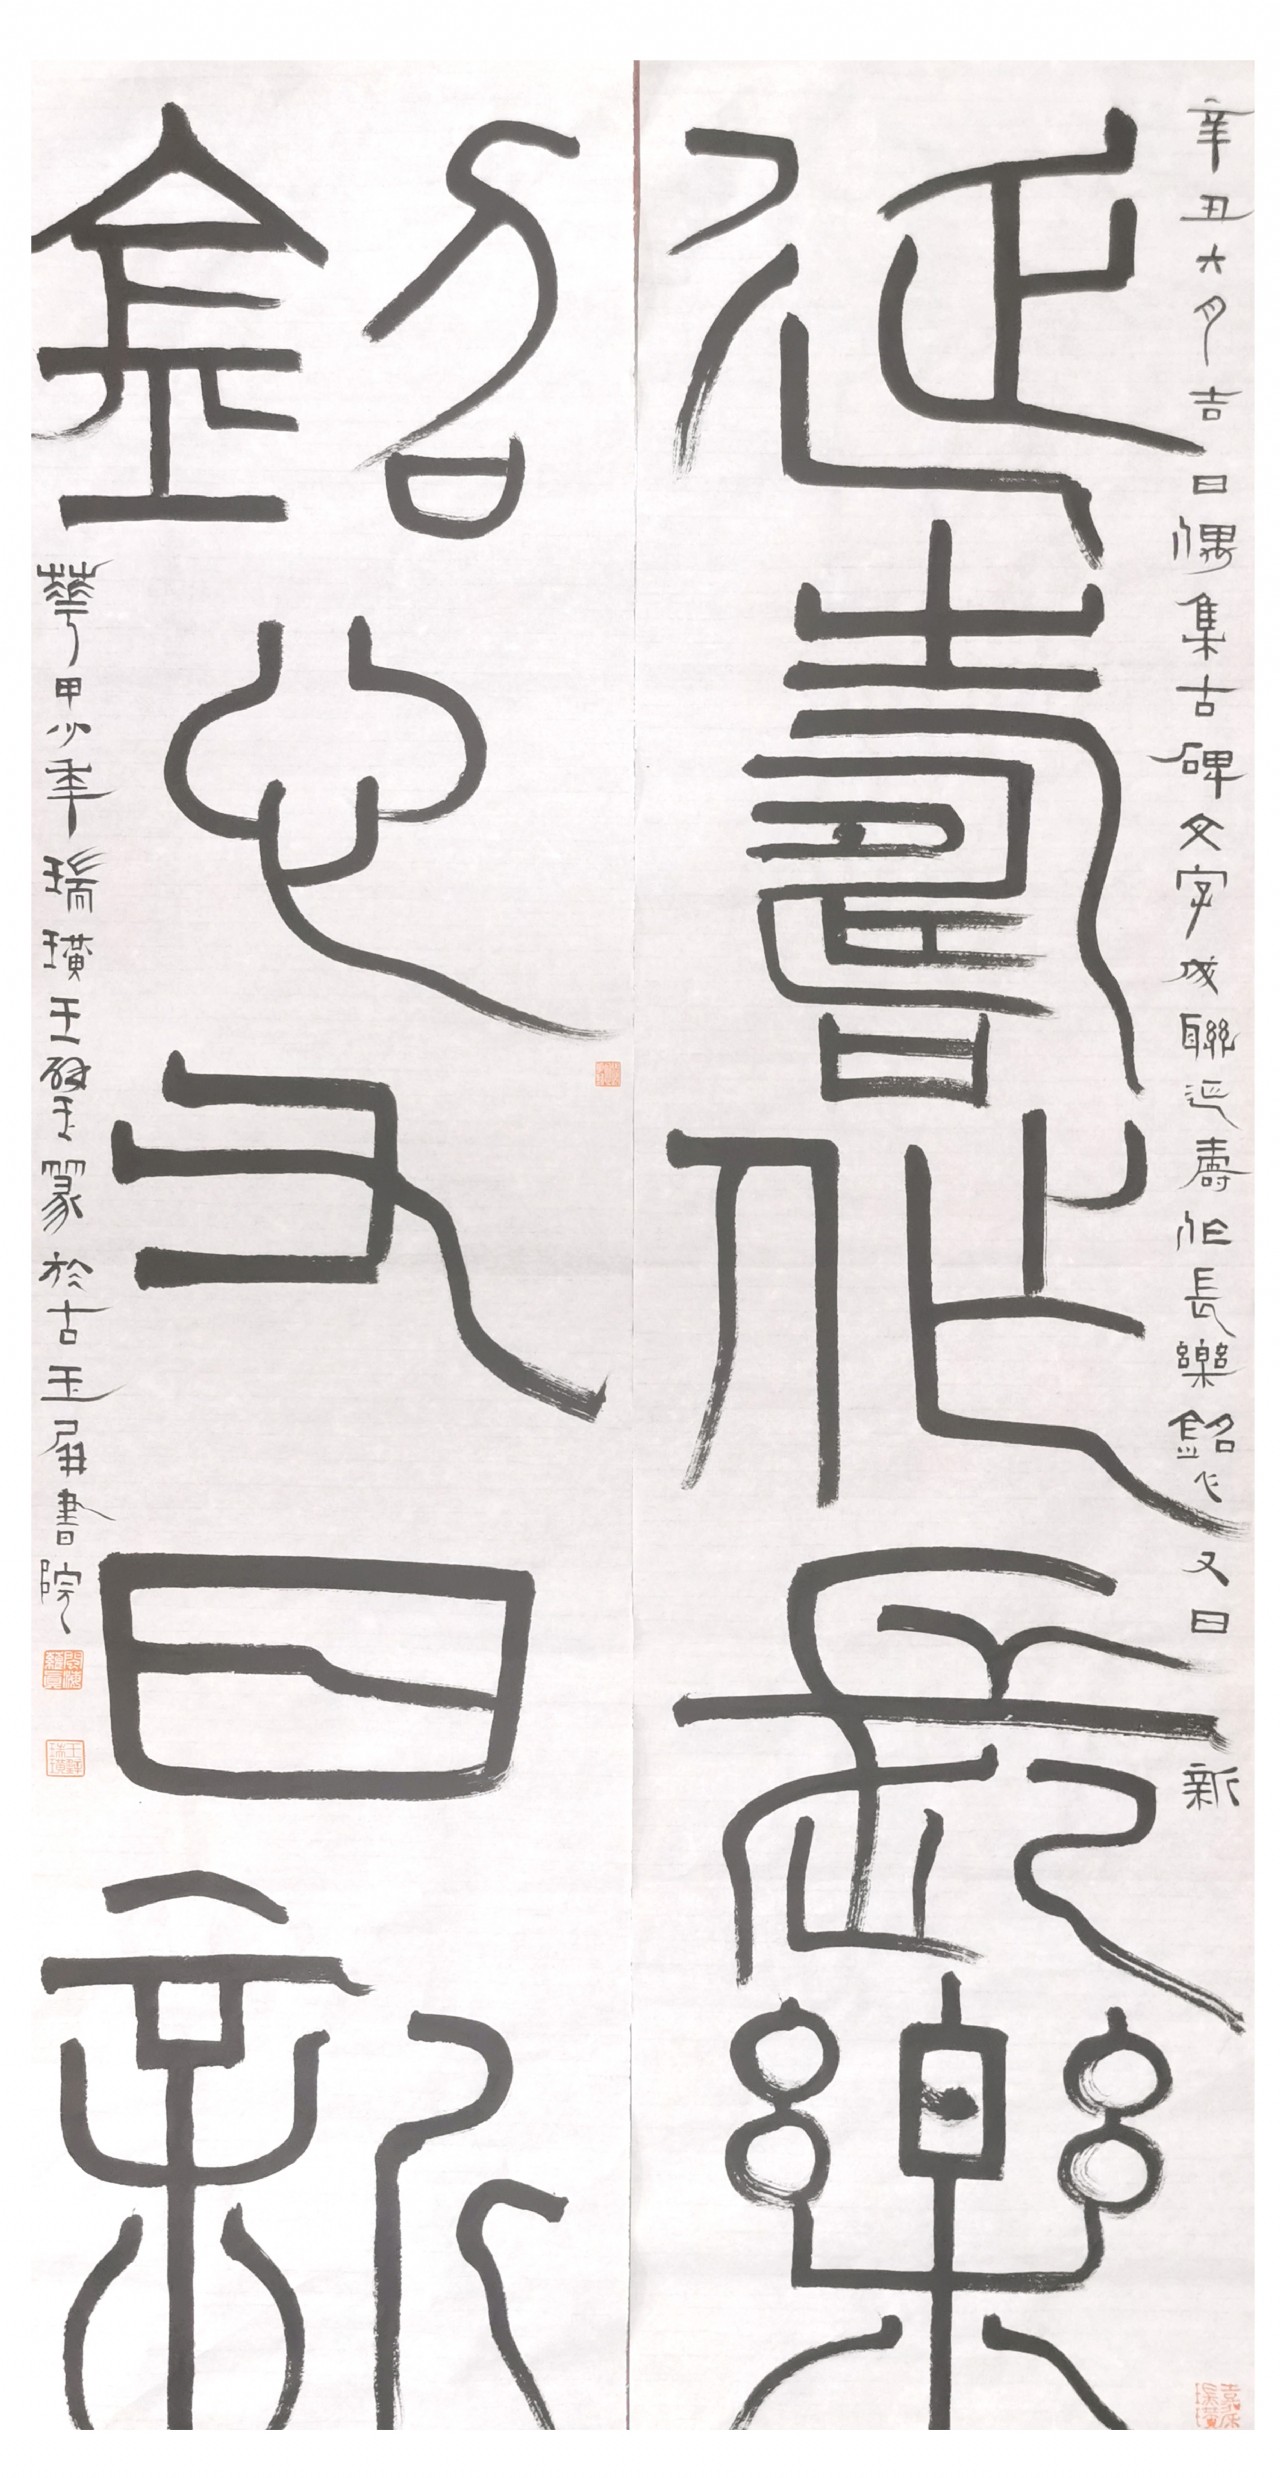 辛丑六月吉日偶集古碑文字成聯延壽作長樂銘心又日新
延壽作長樂
銘心又日新
華甲少年瑞璜王璧玉篆於古玉屏書院